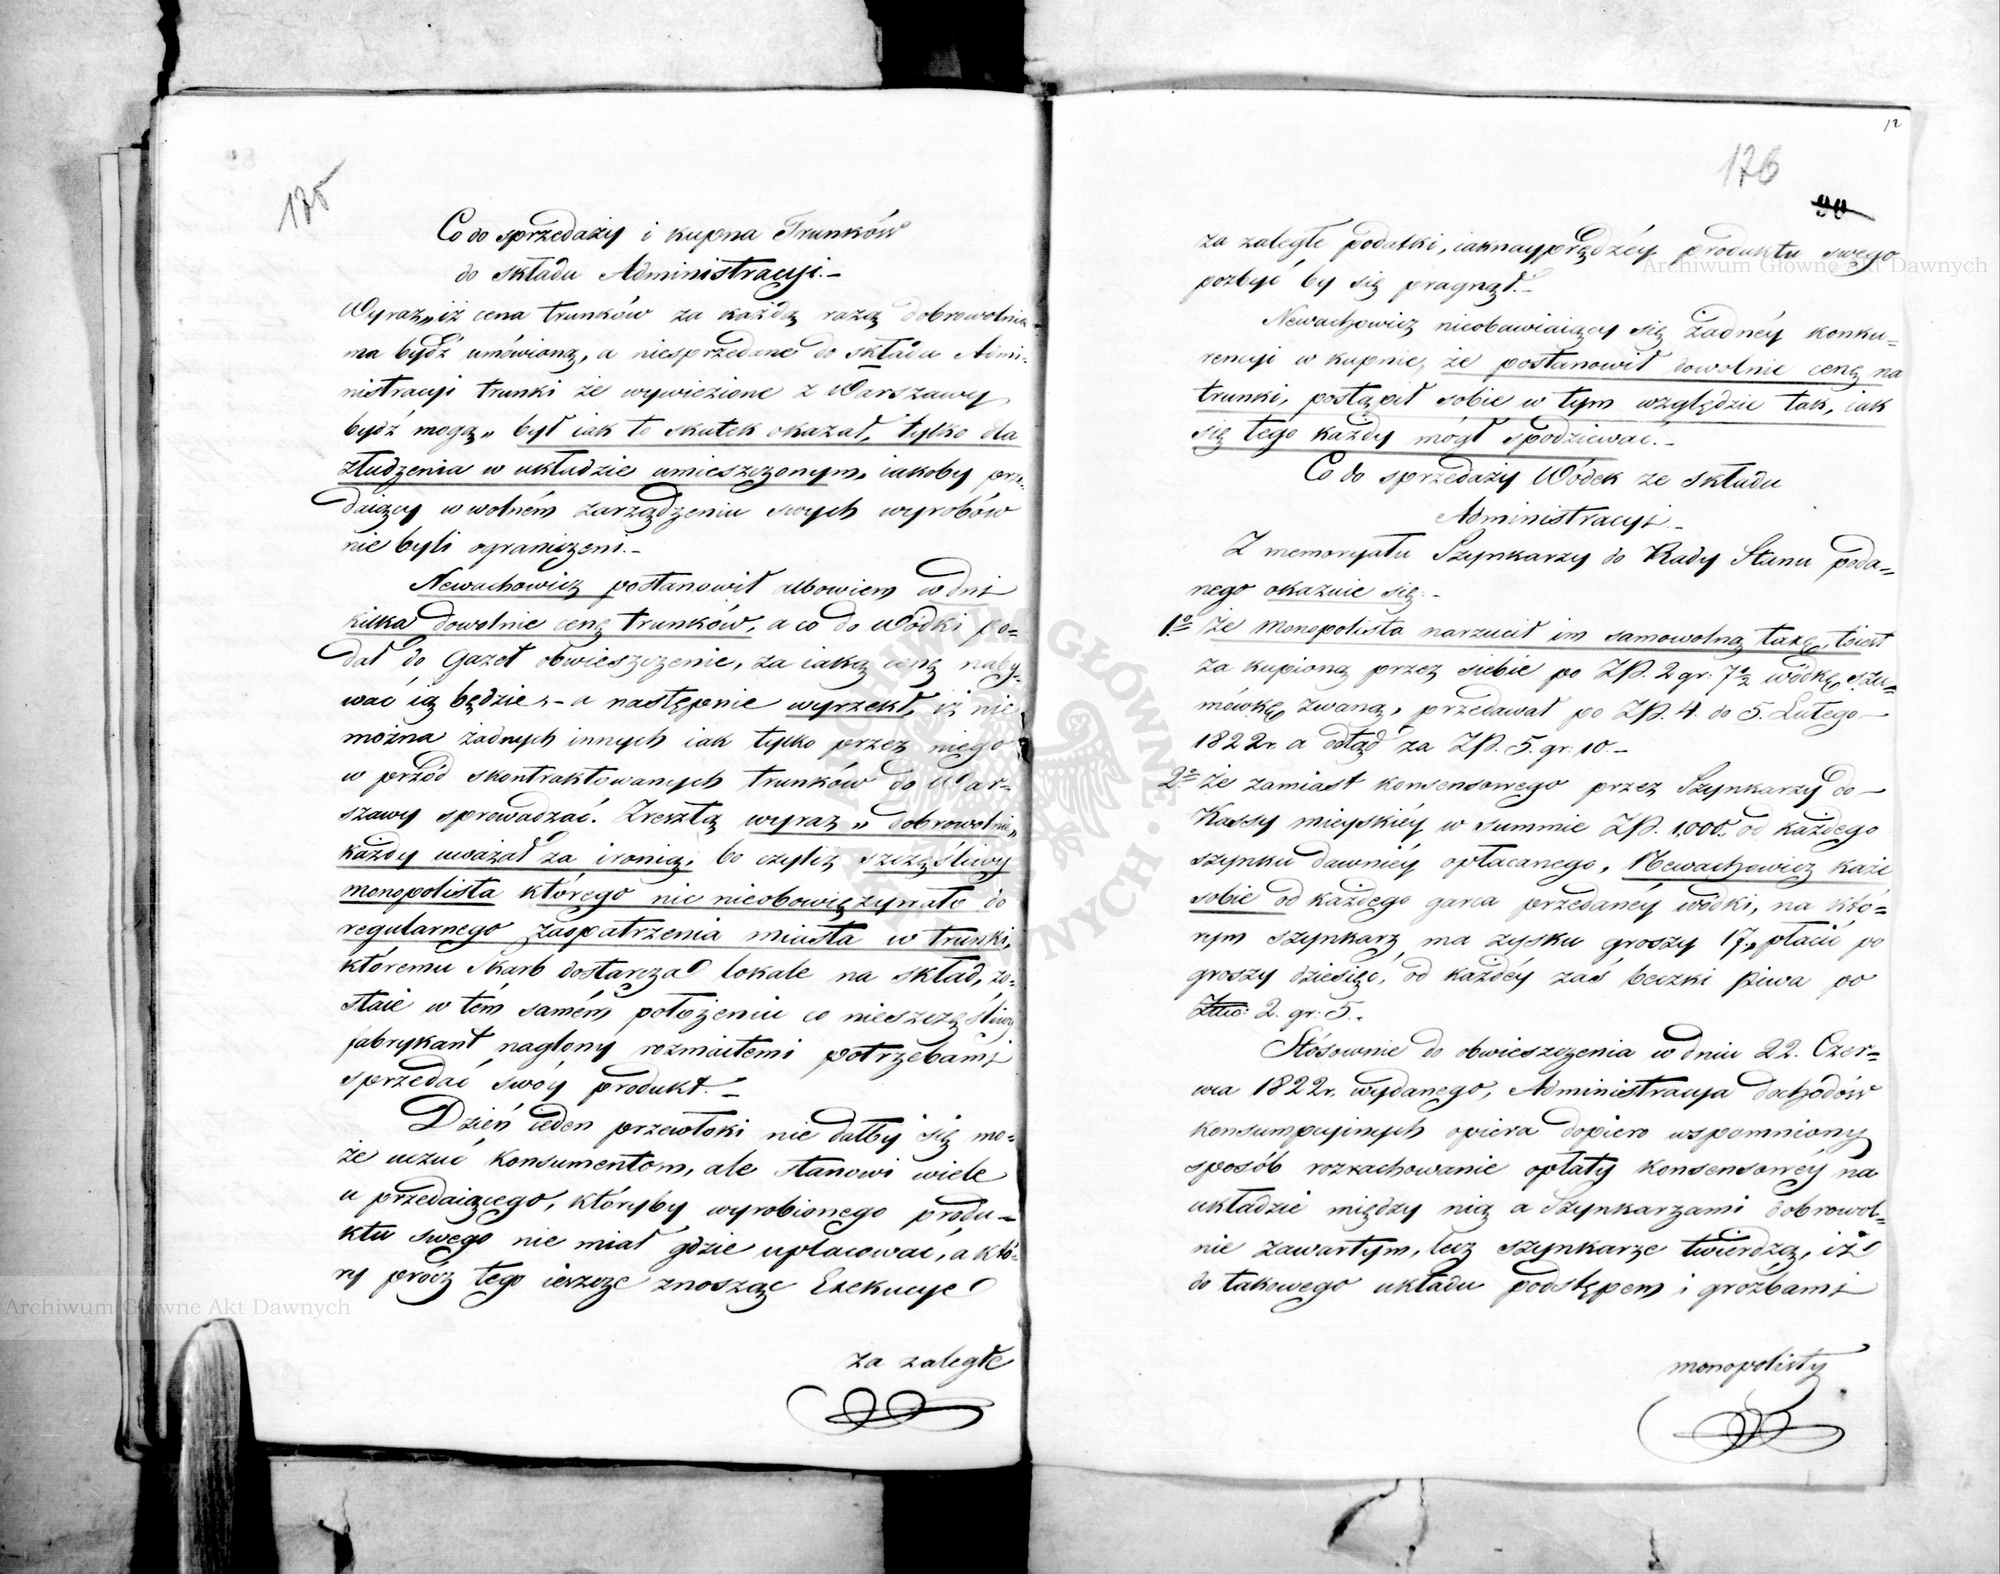 175
Co do sprzedaży i kupna Trunków
do składu Administracyi.–
Wyraz „iż cena trunków za każdą razą dobrowolnie
ma bydź umówioną, a niesprzedane do składu Admi-
nistracyi trunki że wywiezione z Warszawy
bydź mogą„ był iak to skutek okazał, tylko dla
złudzenia w układzie umieszczonym, iakoby prze-
daiący w wolném zarządzeniu swych wyrobów
nie byli ograniczeni.–
Newachowicz postanowił albowiem w dni
kilka dowolnie cenę trunków, a co do Wódki po=
dał do Gazet obwieszczenie, za iaką cenę naby-
wać ią będzie,– a następnie wyrzekł, iż nie
można żadnych innych iak tylko przez niego
w przód skontraktowanych trunków do War-
szawy sprowadzać. Zresztą wyraz „dobrowolnie„
każdy uważał za ironią, bo czyliż szczęśliwy
monopolista którego nic nieobowięzywało do
regularnego zaopatrzenia miasta w trunki,
któremu Skarb dostarczał lokale na skład, zo-
staie w tém samém położeniu co nieszczęśliwy
fabrykant naglony rozmaitemi potrzebami
sprzedać swóy produkt.–
Dzień ieden przewłoki nie dałby się mo-
że uczuć konsumentom, ale stanowi wiele
u przedaiącego, któryby wyrobionego produ-
ktu swego nie miał gdzie uplacować, a któ-
ry prócz tego ieszcze znosząc Exekucye
za zaległe
12
176
90
za zaległe podatki, iaknayprędzéy produktu swego
pozbyć by się pragnął.–
Newachowicz nieobawiaiący się żadnéy konku-
rencyi w kupnie, że postanowił dowolnie cenę na
trunki, postąpił sobie w tym względzie tak, iak
się tego każdy mógł spodziewać.–
Co do sprzedaży Wódek ze składu
Administracyi.–
Z memoryału Szynkarzy do Rady Stanu poda-
nego okazuie się:–
1.o że Monopolista narzucił im samowolną taxę, toiest
za kupioną przez siebie po Zp. 2 gr: 7 1/2 wódkę szu-
mówkę zwaną, przedawał po Zp. 4. do 5. Lutego
1822 r. a odtąd za Zp. 5. gr: 10.–
2.o że zamiast konsensowego przez Szynkarzy do
Kassy mieyskiéy w summie Zp. 1,000. od każdego
szynku dawniéy opłacanego, Newachowicz każe
sobie od każdego garca przedanéy wódki, na któ-
rym szynkarz ma zysku groszy 17, płacić po
groszy dziesięć, od każdéy zaś beczki piwa po
2. gr: 5.
Stósownie do obwieszczenia w dniu 22. Czer-
wca 1822 r. wydanego, Administracya dochodów
konsumpcyinych opiera dopiero wspomniony
sposób rozrachowanie opłaty konsensowéy na
układzie między nią a Szynkarzami dobrowol-
nie zawartym, lecz szynkarze twierdzą, iż
do takowego układu podstępem i groźbami
monopolisty
Archiwum Główne Akt Dawnych
Archiwum Główne Akt Dawnych